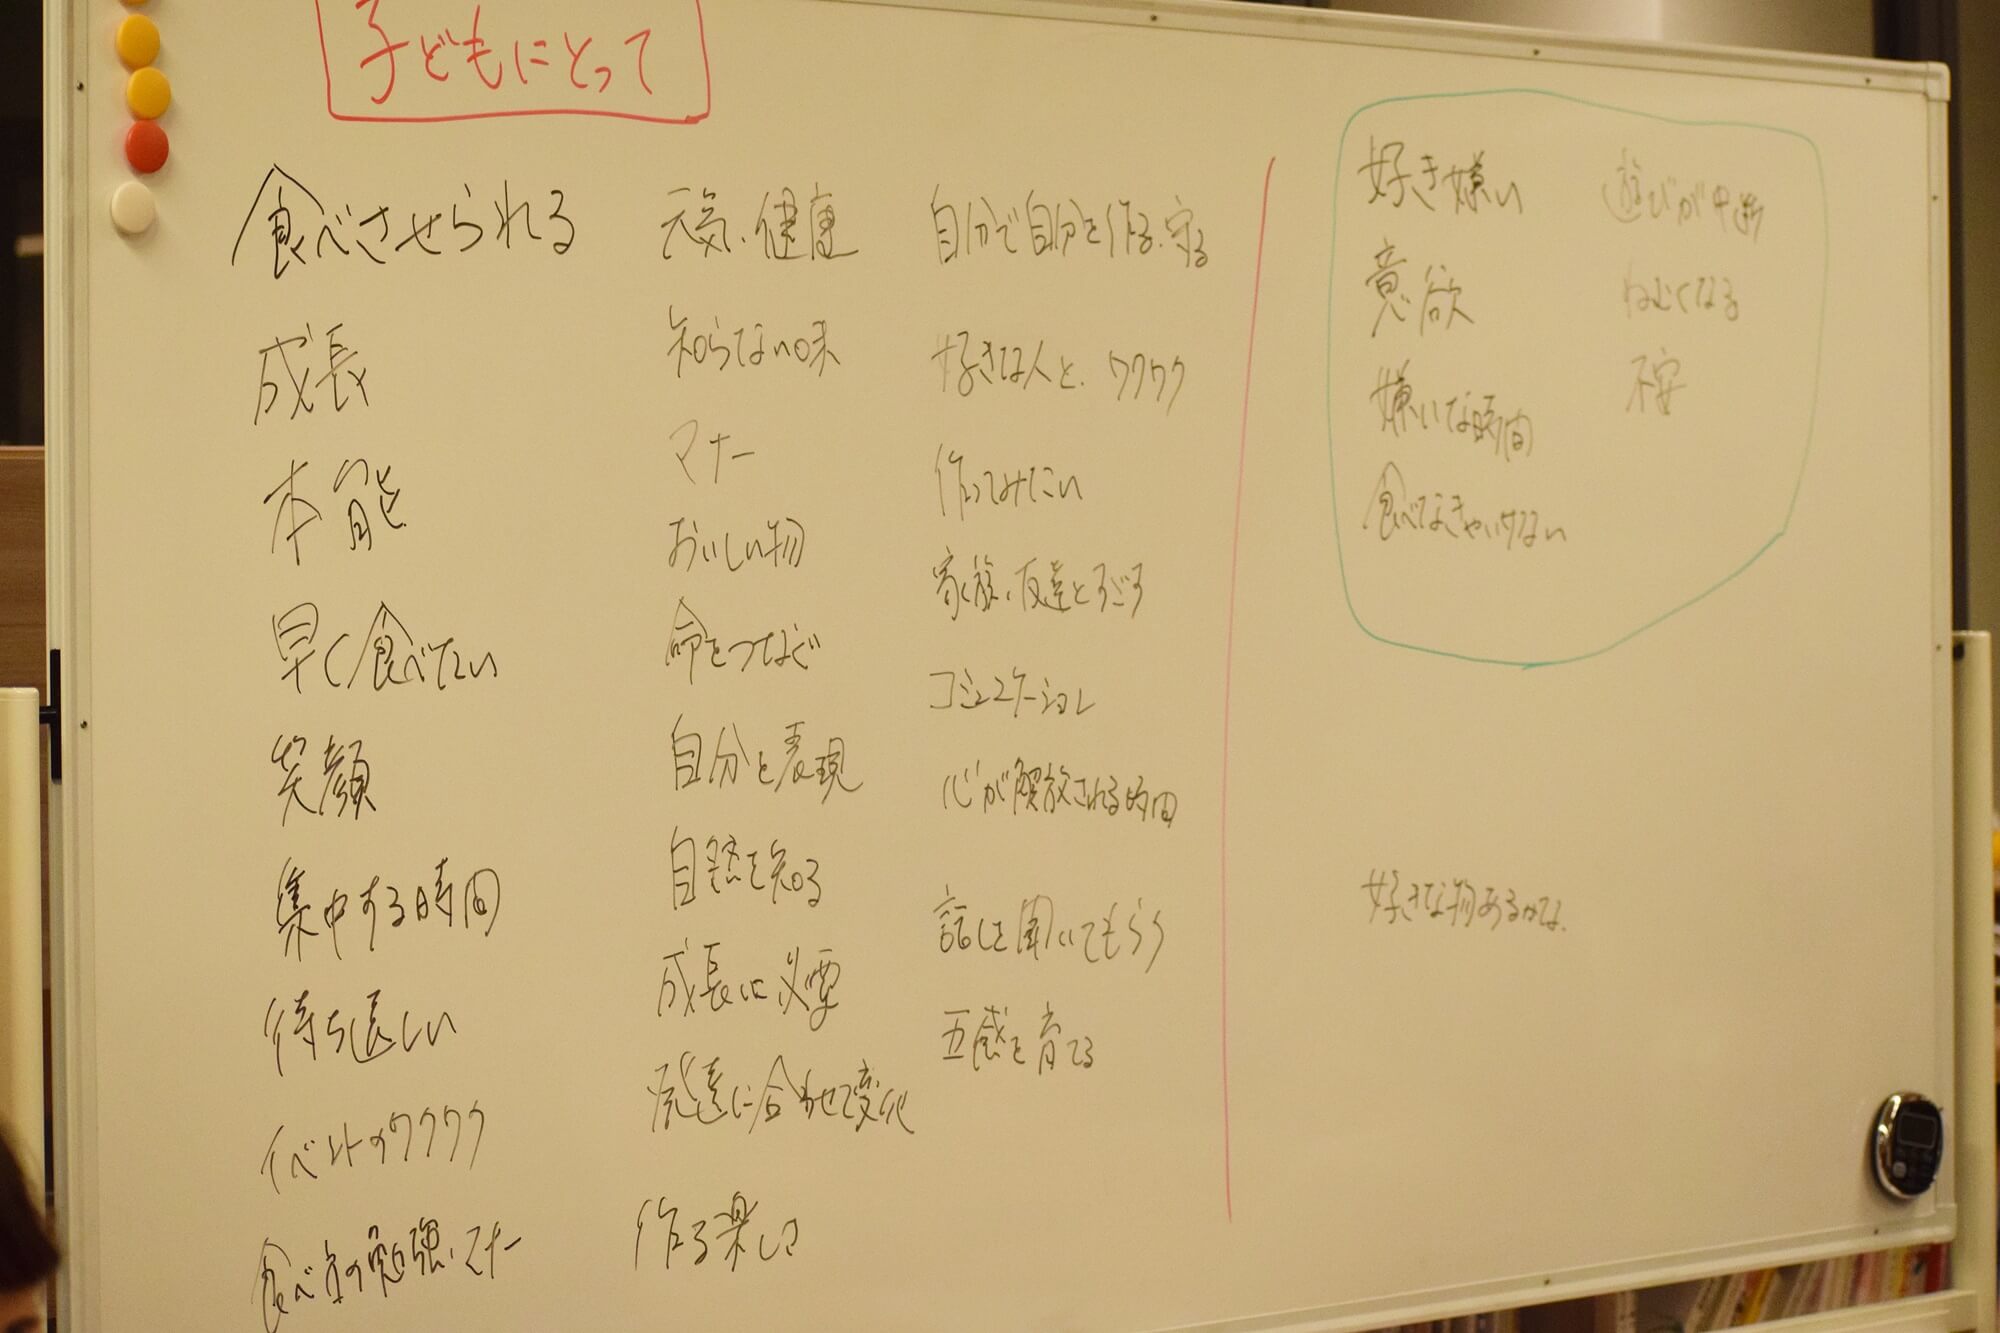 子どもにとって
食べさせられる
成長
本能
早く食べたい
笑顔
集中する時間
待ち遠しい
イベントのワクワク
食べ方の勉強、マナー
元気、健康
知らない味
マナー
おいしい物
命をつなぐ
自分を表現
自然を知る
成長に必要
発達に合わせて変化
作る楽しさ
自分で自分を作る、守る
好きな人と、ワクワク
作ってみたい
家族、友達とすごす
コミュニケーション
心が解放される時間
話しを聞いてもらう
五感を育てる
好き嫌い
意欲
嫌いな時間
食べなきゃいけない
遊びが中断
ねむくなる
不安
好きな物あるかな、